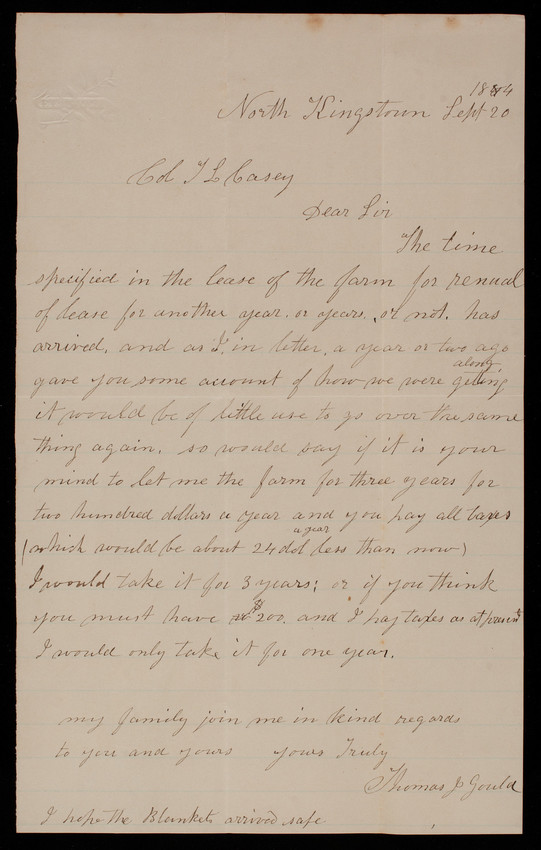 1884
North Kingstown Sept 20
Col T L Casey
Dear Sir
The time
specified in the lease of the farm for renual
of lease for another year, or years, or not, has
arrived, and as I, in letter, a year or two ago
along
gave you some account of how we were geting
it would be of little use to go over the same
thing again, so would say if it is your
mind to let me the farm for three years for
two hundred dollars a year and you pay all taxes
a year
(which would be about 24 dol less than now)
I would take it for 3 years; or if you think
you must have $200. and I pay taxes as at present
I would only take it for one year.
my family join me in kind regards
to you and yours yours Truly
Thomas J Gould
I hope the Blankets arrived safe